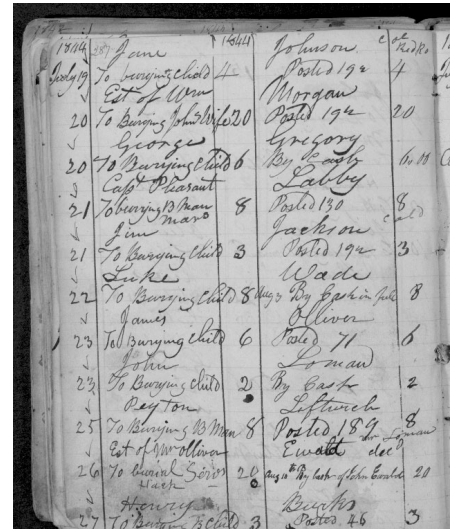 1844 287 Jane 1844 Johnson Col
July 19 To burying child 4 Posted 192 4
Est of Wm Morgan
20 To Burying John's Wife 20 Posted 192 20
George Gregory
20 To Burying Child 6 By Cash 6.00
Capt Pleasant Labby
21 To burying B Man 8 Posted 130 8
Jim Jackson
21 To Burying Child 3 Posted 192 3
Luke Wade
22 To Burying Child 8 Aug 3 By Cash in full 8
James Olliver
23 To Burying Child 6 Posted 71 6
John Loman
23 To Burying child 2 By Cash 2
Peyton Leftwich
25 To Burying B Man 8 Posted 189 8
Est of Mr Olliver Ewald decd
26 To burial 20 Aug 10 By Cash of John Ewald 20
Henry Burks
27 To Burying B Child 3 Posted 46 3